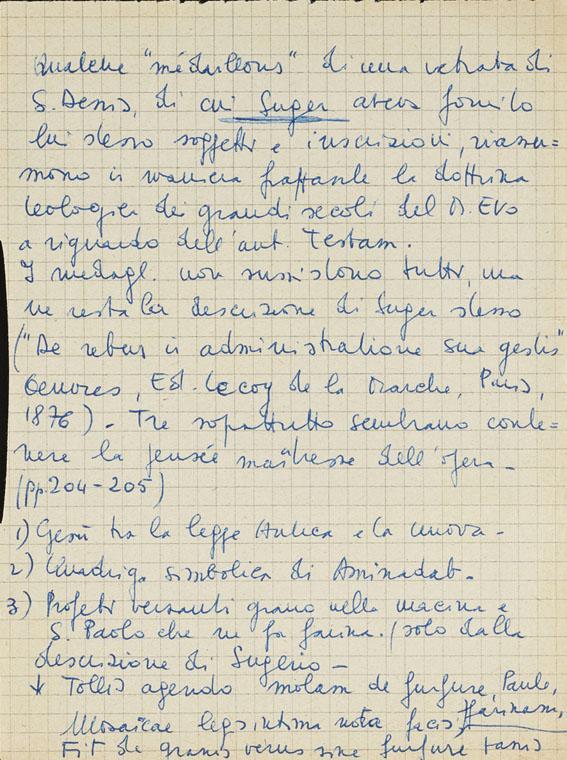 Qualche "médaillons" di una vetrata di
S. Denis, di cui Suger aveva fornito
lui stesso soggetti e inscrizioni, riassu=
mono in maniera frappante la dottrina
teologica dei grandi secoli del M. Evo
a riguardo dell'ant. Testam.
I medagl. non sussistono tutti, ma
ne resta la descrizione di Suger stesso
("De rebus in administratione sua gestis"
Oeuvres, Ed. Lecoy de la Marche, Paris,
1876) - Tre soprattutto sembrano conte=
nere la pensée maîtresse dell'opera -
(pp. 204-205)
1) Gesù tra la legge Antica e la nuova -
2) Quadriga simbolica di Aminadab -
3) Profeti versanti grano nella macina e
S. Paolo che ne fa farina. (solo dalla
descrizione di Sugerio -
Tollis agendo molam de furfure, Paule,
farinam,
Mosaicae legis intima nota facis,
Fit de granis verus sine furfure panis